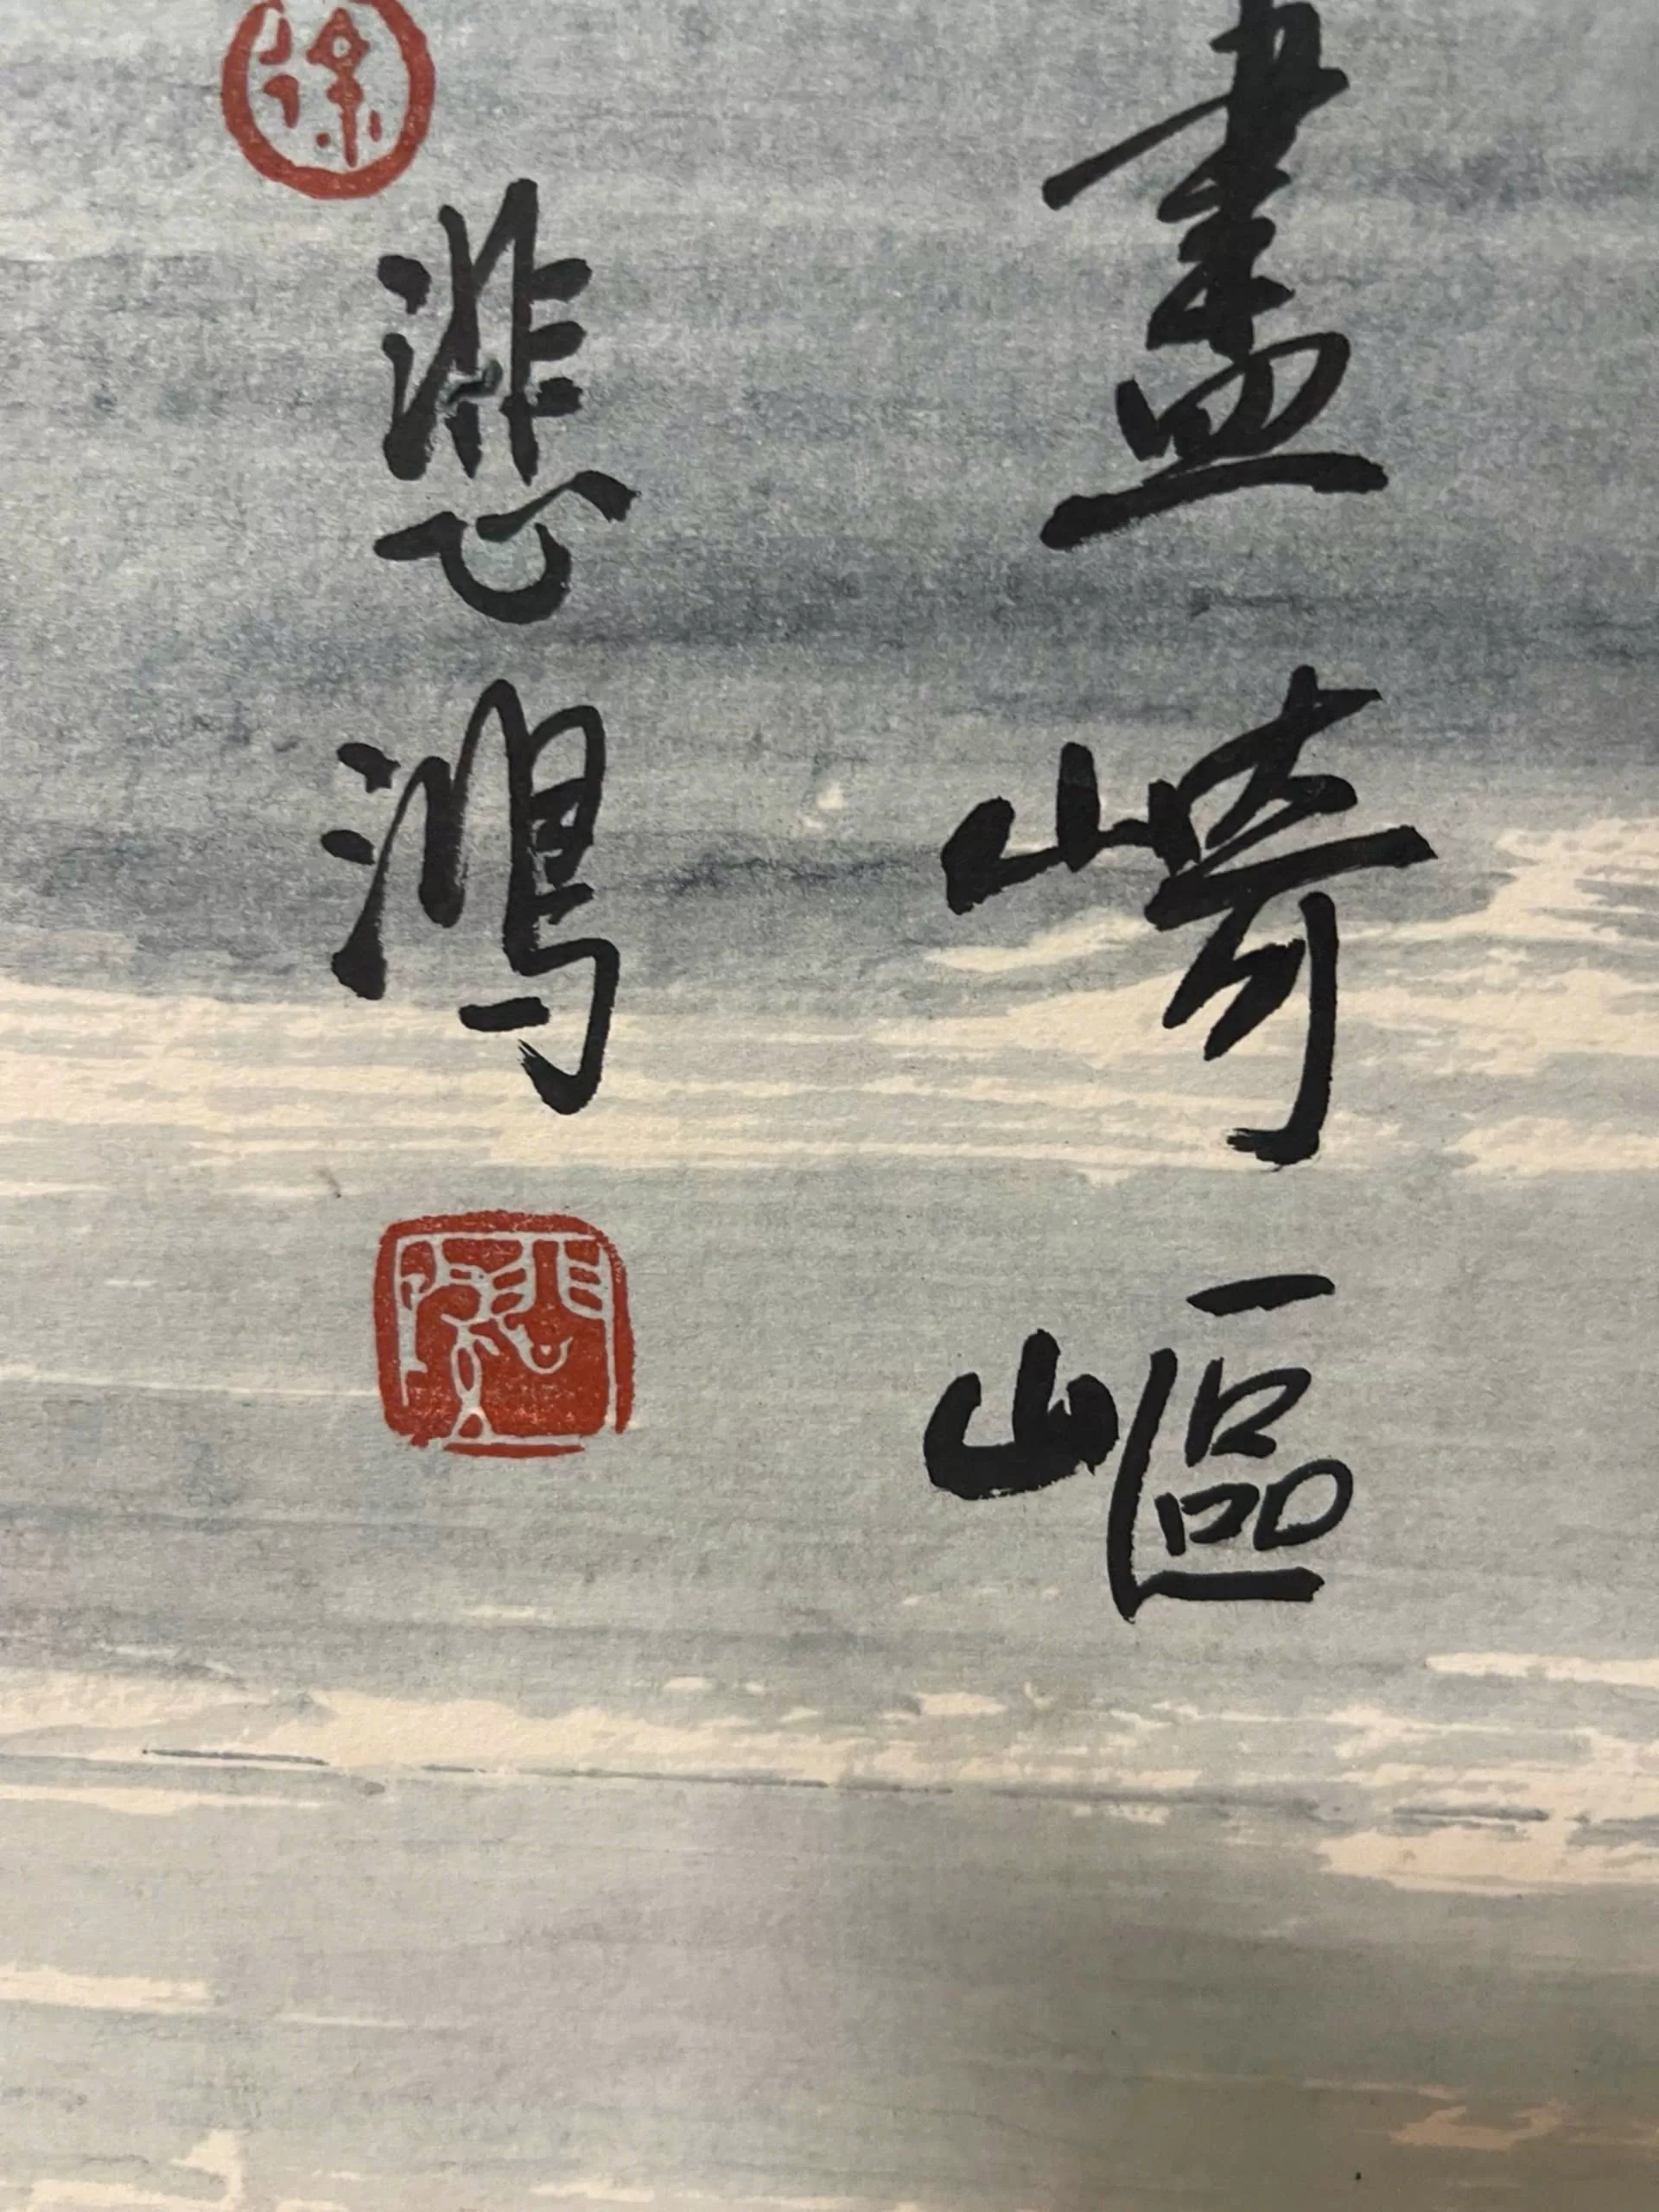 盡崎嶇
悲鴻
徐
悲鴻